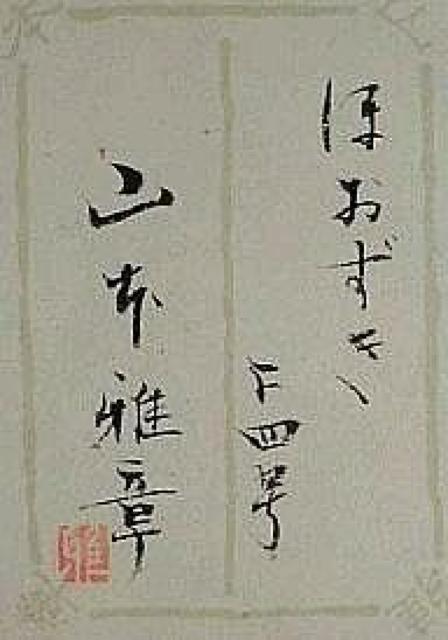 ほおずき
下四号
山本雅章
雅